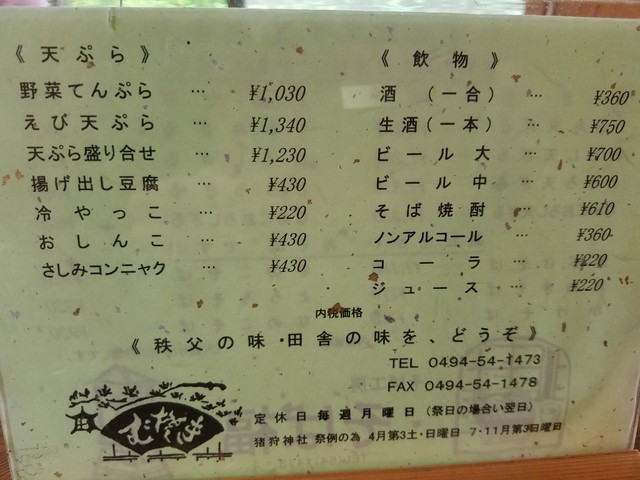 《 天 ぷ ら 》
野菜てんぷら … ¥1,030
えび天ぷら … ¥1,340
天ぷら盛り合せ … ¥1,230
揚げ出し豆腐 … ¥430
冷やっこ … ¥220
おしんこ … ¥430
さしみコンニャク … ¥430
《 飲 物 》
酒 (一合) … ¥360
生酒(一本) … ¥750
ビール大 … ¥700
ビール中 … ¥600
そば焼酎 … ¥610
ノンアルコール … ¥360
コーラ … ¥220
ジュース … ¥220
内税価格
《 秩父の味・田舎の味を、どうぞ 》
TEL 0494-54-1473
FAX 0494-54-1478
定休日毎週月曜日(祭日の場合い翌日)
猪狩神社 祭例の為 4月第3土・日曜日 7・11月第3日曜日